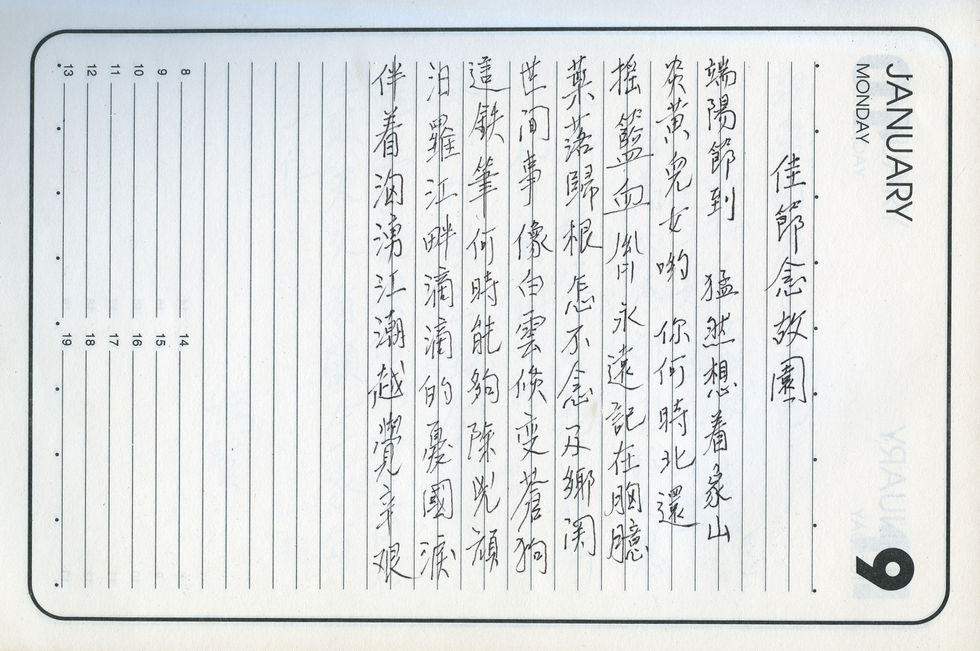 JANUARY
MONDAY
9
佳節念故園
端陽節到 猛然想着家山
炎黃兒女喲 你何時北還
搖籃血胤 永遠記在胸臆
葉落歸根 怎不念及鄉関
世间事像白雲倏变蒼狗
這鉄筆何時能夠除兇頑
汨羅江畔滴滴的憂國淚
伴着洶湧江潮越覺辛艰
8
9
10
11
12
13
14
15
16
17
18
19